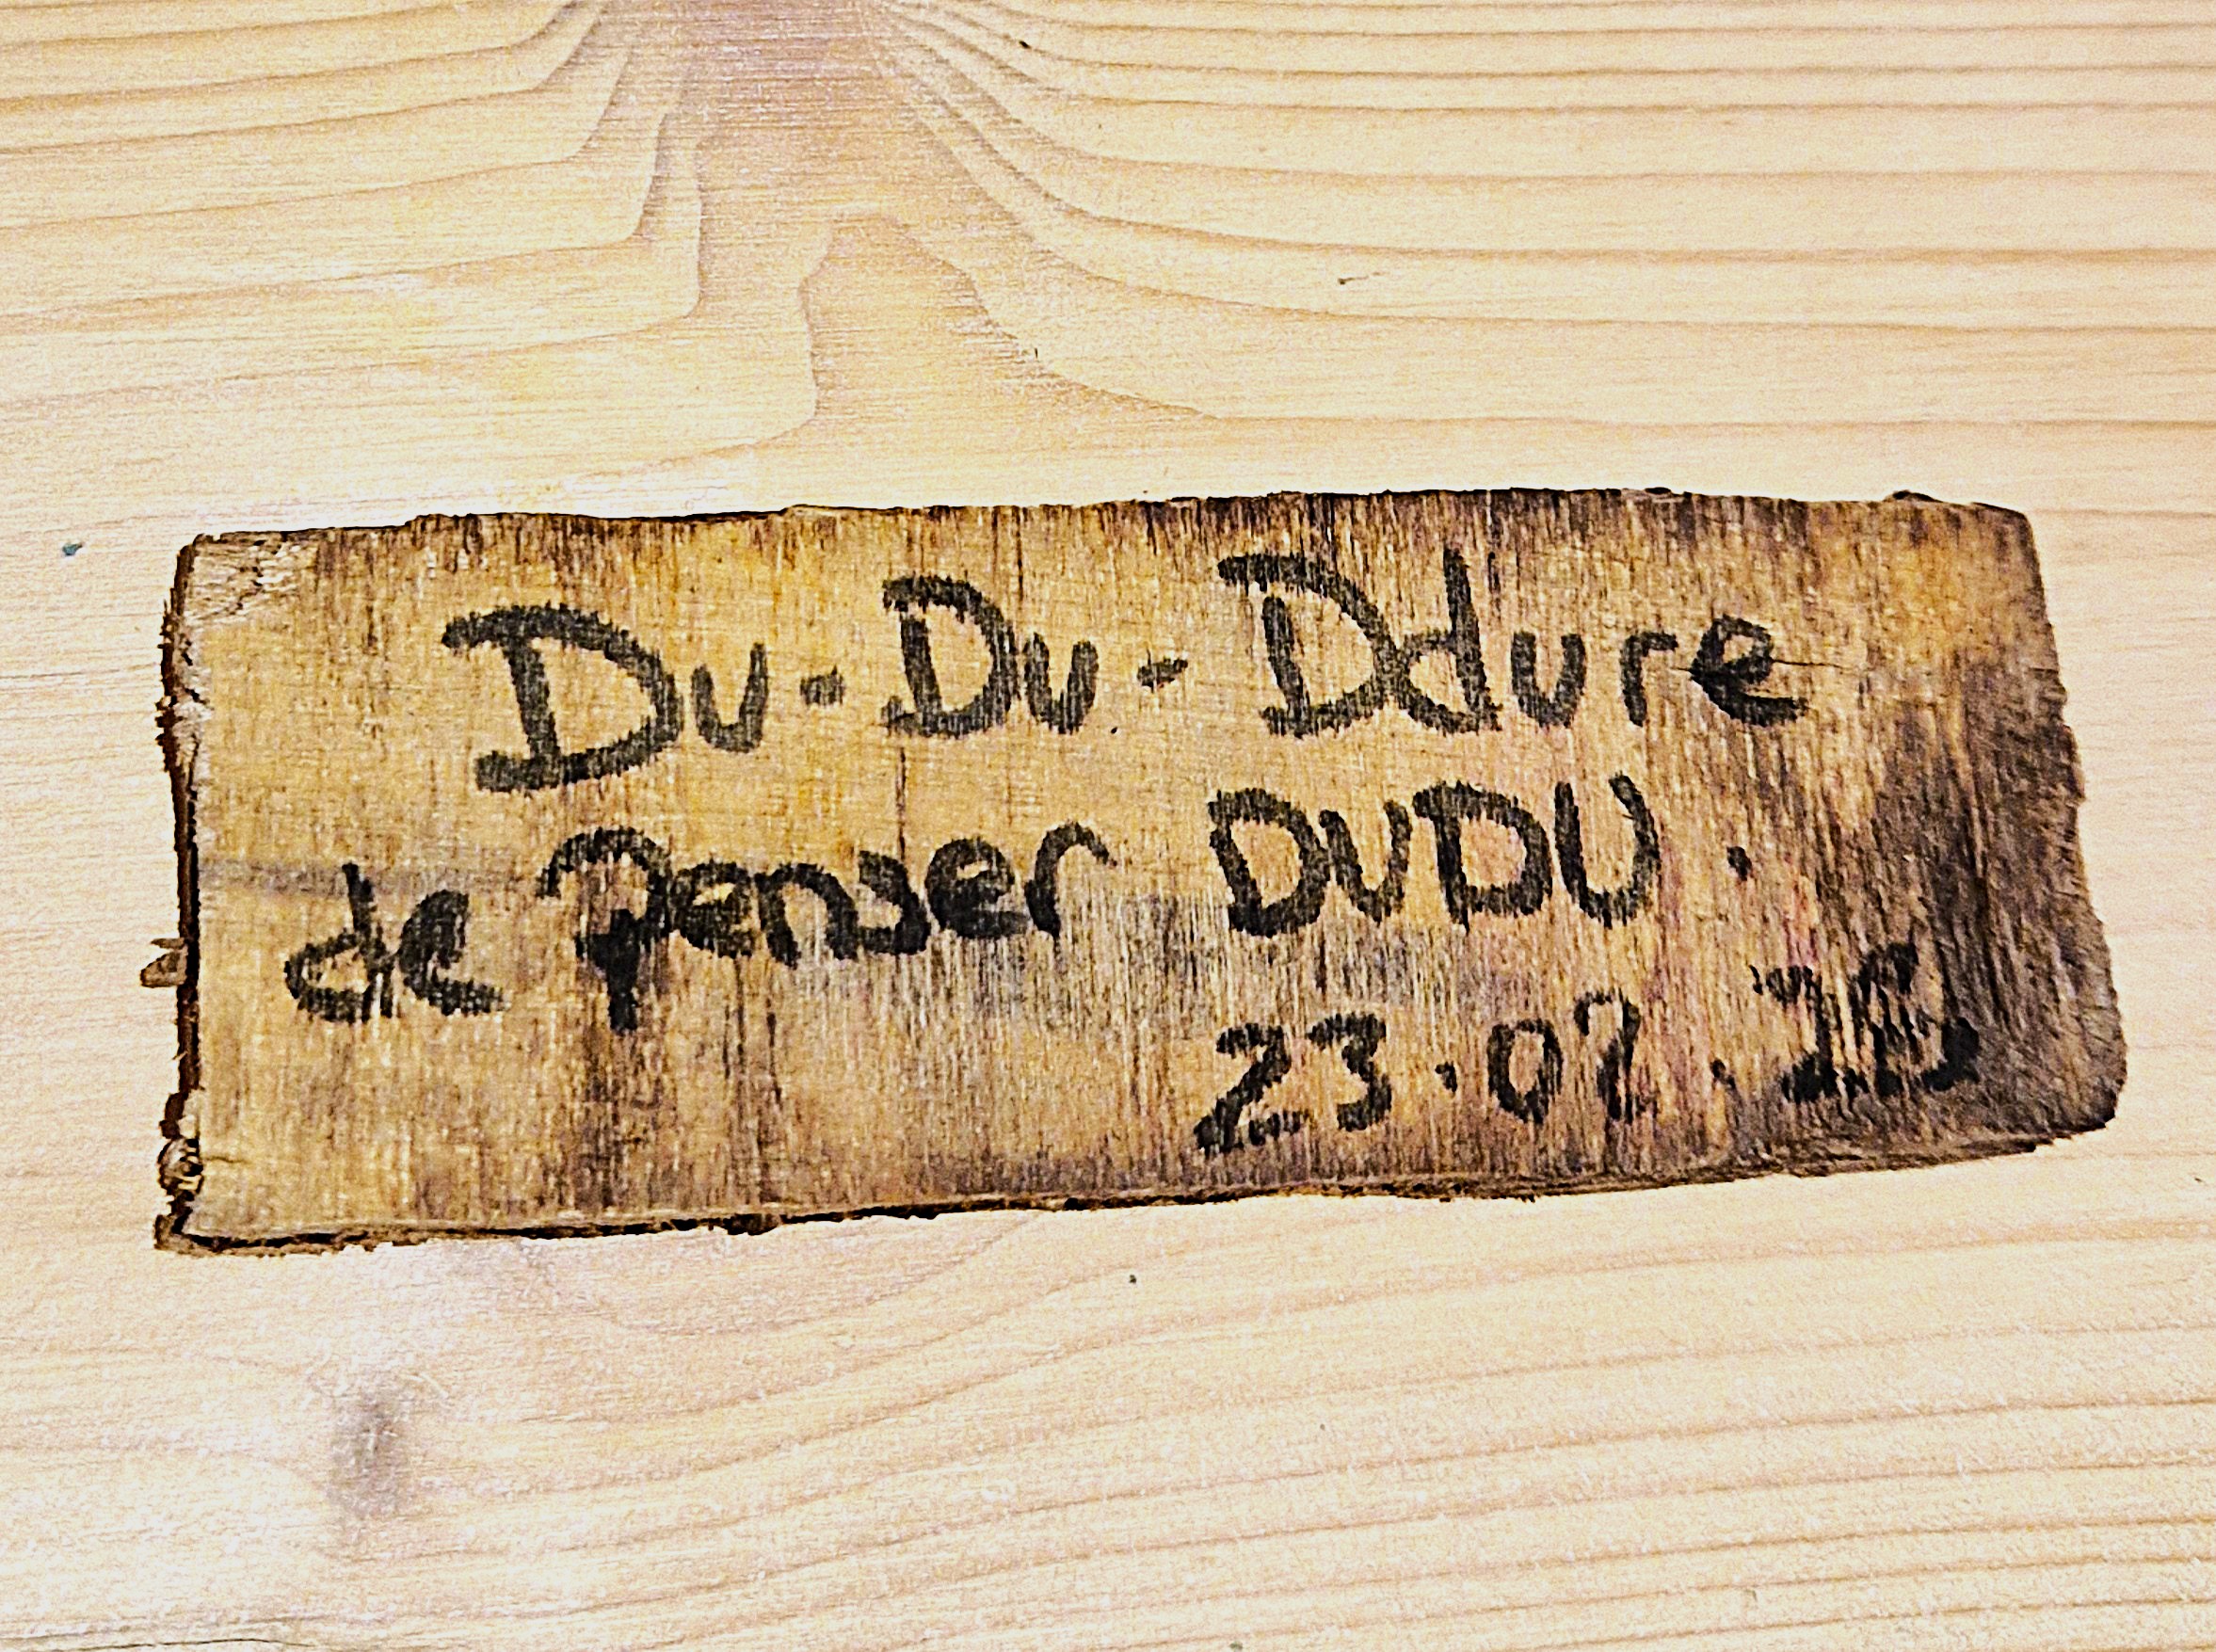 Du-Du-Ddure
de penser DUDU.
23.02.25